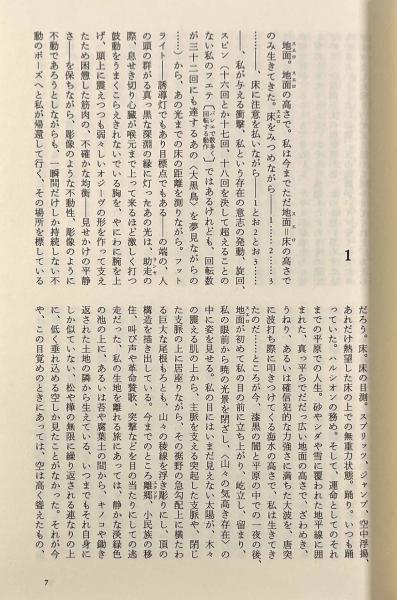 1
地面。地面の高さで。私は今までただ地面=床の高さで
のみ生きてきた。床をみつめながら——1……2……3
………、床に注意を払いながら——1と お2と お3……
——、私が与える衝撃、私という存在の意志の発動、旋回、
スピン(十六回とか十七回、十八回を決して超えることの
ない私のフエテ〔バレエで数多く回転する動作〕ではあるけれども、回転数
が三十二回にも達するあの〈大黒鳥〉を夢見ながらの
……)から、あの光までの床の距離を測りながら。フット
ライト——誘導灯でもあり目標点でもある——の端の、人
の頭の群がる真っ黒な深淵の縁に灯ったあの光は、助走の
際、息せき切り心臓が喉元まで上って来るほど激しく打つ
鼓動をうまくこらえきれないでいる胸を、やにわに腕を上
げ、頭上に震えつつも弱々しいオジーヴの形を作って支え
たため困憊した筋肉の、不確かな均衡——見せかけの平静
さ——を保ちながら、彫像のような不動性、彫像のように
不動であろうとしながらも、一瞬間だけしか持続しない不
動のポーズへと私が帰還して行く、その場所を標している
だろう。床。床の目測。スプリッツ、ジャンプ、空中浮揚、
あれだけ熱望した床の上での無重力状態。踊り。いつも踊
っていた。ベルシオンの務め。そして、運命としてのそれ
までの平原での人生。砂やシダや雪に覆われた地平線に囲
まれた、真っ平らでだだっ広い地面の高さで、ざわめき、
うねり、あるいは確信犯的な力強さに満ちた大波を、唐突
に波打ち際に叩きつけてくる海水の高さで、私は生きてき
たのだ……ところが今、漆黒の闇と平原の中での一夜の後、
地面が初めて私の目の前に立ち上がり、屹立し、留まり、
私の眼前から暁の光景を閉ざし、〈山々の気高き存在〉の
中に姿を見せる。私の目にはいまだ見えない太陽が、木々
の震える肌の上から、主脈を支える突起した支脈や、閉じ
た支脈の上に居座りながら、その裾野の急勾配上に横わ
る巨大な尾根もろとも、山々の稜線を浮き彫りにし、頂の
構造を描き出している。今までのところ離郷、小民族の移
住、叫び声や革命讃歌、突撃などを目の当たりにしての逃
走だった、私の生地を離れる旅にあっては、静かな淡緑色
の池の上に、あるいは苔や腐葉土の間から、キノコや鋤き
返された土地の隣から生えている、いつまでもそれ自身に
しか似ていない、松や樺の無限に繰り返される連なりの上
に、低く垂れ込める空しか見たことがなかった。それが今
や、この目覚めのときにあっては、空は高く聳えたもの、
7